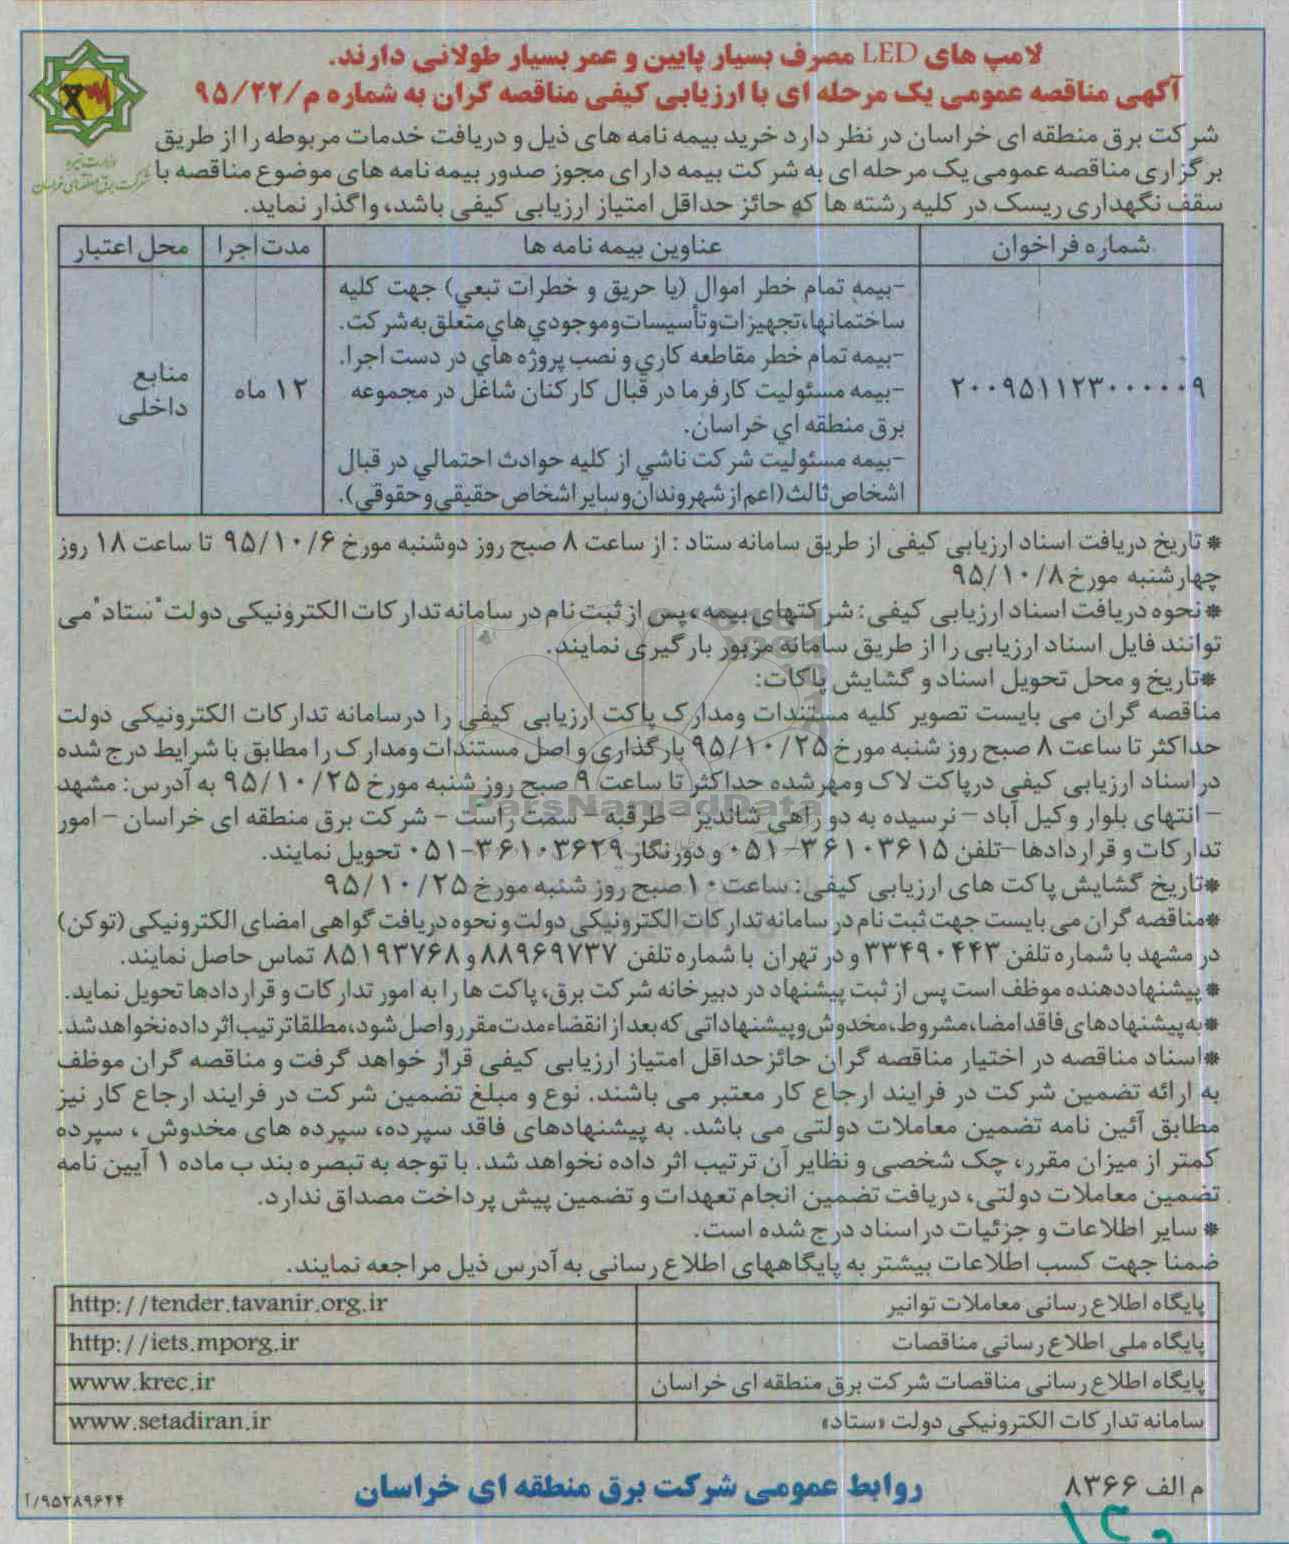 لامپ های LED مصرف بسیار پایین و عمر بسیار طولانی دارند.
آگهی مناقصه عمومی یک مرحله ای با ارزیابی کیفی مناقصه گران به شماره م/۹۵/۲۲
وزارت نیرو
شرکت برق منطقه‌ای خراسان
شرکت برق منطقه ای خراسان در نظر دارد خرید بیمه نامه های ذیل و دریافت خدمات مربوطه را از طریق
برگزاری مناقصه عمومی یک مرحله ای به شرکت بیمه دارای مجوز صدور بیمه نامه های موضوع مناقصه با
سقف نگهداری ریسک در کلیه رشته ها که حائز حداقل امتیاز ارزیابی کیفی باشد، واگذار نماید.
شماره فراخوان	عناوین بیمه نامه ها	مدت اجرا	محل اعتبار
-بیمه تمام خطر اموال (یا حریق و خطرات تبعي) جهت کلیه
ساختمانها،تجهیزات وتأسیسات وموجودي هاي متعلق به شرکت.
-بیمه تمام خطر مقاطعه کاري و نصب پروژه هاي در دست اجرا.
-بیمه مسئولیت کارفرما در قبال کارکنان شاغل در مجموعه
برق منطقه اي خراسان.
-بیمه مسئولیت شرکت ناشي از کلیه حوادث احتمالي در قبال
اشخاص ثالث(اعم از شهروندان و سایر اشخاص حقیقي و حقوقي).
۲۰۰۹۵۱۱۲۳۰۰۰۰۰۹
۱۲ ماه
منابع
داخلی
* تاریخ دریافت اسناد ارزیابی کیفی از طریق سامانه ستاد : از ساعت ۸ صبح روز دوشنبه مورخ ۹۵/۱۰/۶ تا ساعت ۱۸ روز
چهارشنبه مورخ ۹۵/۱۰/۸
*نحوه دریافت اسناد ارزیابی کیفی: شرکتهای بیمه ،پس از ثبت نام در سامانه تدارکات الکترونیکی دولت"ستاد"می
توانند فایل اسناد ارزیابی را از طریق سامانه مزبور بارگیری نمایند.
*تاریخ و محل تحویل اسناد و گشایش پاکات:
مناقصه گران می بایست تصویر کلیه مستندات ومدارک پاکت ارزیابی کیفی را درسامانه تدارکات الکترونیکی دولت
حداکثر تا ساعت ۸ صبح روز شنبه مورخ ۹۵/۱۰/۲۵ بارگذاری و اصل مستندات ومدارک را مطابق با شرایط درج شده
در اسناد ارزیابی کیفی درپاکت لاک ومهر شده حداکثر تا ساعت ۹ صبح روز شنبه مورخ ۹۵/۱۰/۲۵ به آدرس: مشهد
- انتهای بلوار وکیل آباد - نرسیده به دو راهی شاندیز - طرقبه - سمت راست - شرکت برق منطقه ای خراسان - امور
تدارکات و قراردادها -تلفن ۳۶۱۰۳۶۱۵-۰۵۱ و دورنگار ۳۶۱۰۳۶۲۹-۰۵۱ تحویل نمایند.
*تاریخ گشایش پاکت های ارزیابی کیفی: ساعت ۱۰ صبح روز شنبه مورخ ۹۵/۱۰/۲۵
*مناقصه گران می بایست جهت ثبت نام در سامانه تدارکات الکترونیکی دولت و نحوه دریافت گواهی امضای الکترونیکی (توکن)
در مشهد با شماره تلفن ۳۳۴۹۰۴۴۳ و در تهران با شماره تلفن ۸۸۹۶۹۷۳۷ و ۸۵۱۹۳۷۶۸ تماس حاصل نمایند.
* پیشنهاددهنده موظف است پس از ثبت پیشنهاد در دبیرخانه شرکت برق، پاکت ها را به امور تدارکات و قراردادها تحویل نماید.
*به پیشنهادهای فاقد امضا،مشروط،مخدوش وپیشنهاداتی که بعد از انقضاء مدت مقرر واصل شود،مطلقا ترتیب اثر داده نخواهد شد.
*اسناد مناقصه در اختیار مناقصه گران حائز حداقل امتیاز ارزیابی کیفی قرار خواهد گرفت و مناقصه گران موظف
به ارائه تضمین شرکت در فرایند ارجاع کار معتبر می باشند. نوع و مبلغ تضمین شرکت در فرایند ارجاع کار نیز
مطابق آئین نامه تضمین معاملات دولتی می باشد. به پیشنهادهای فاقد سپرده، سپرده های مخدوش ، سپرده
کمتر از میزان مقرر، چک شخصی و نظایر آن ترتیب اثر داده نخواهد شد. با توجه به تبصره بند ب ماده ۱ آیین نامه
تضمین معاملات دولتی، دریافت تضمین انجام تعهدات و تضمین پیش پرداخت مصداق ندارد.
* سایر اطلاعات و جزئیات در اسناد درج شده است.
ضمنا جهت کسب اطلاعات بیشتر به پایگاههای اطلاع رسانی به آدرس ذیل مراجعه نمایند.
پایگاه اطلاع رسانی معاملات توانیر	http://tender.tavanir.org.ir
پایگاه ملی اطلاع رسانی مناقصات	http://iets.mporg.ir
پایگاه اطلاع رسانی مناقصات شرکت برق منطقه ای خراسان	www.krec.ir
سامانه تدارکات الکترونیکی دولت «ستاد»	www.setadiran.ir
م الف ۸۳۶۶
روابط عمومی شرکت برق منطقه ای خراسان
۹۵۲۸۹۶۴۴/آ
ParsNamadData